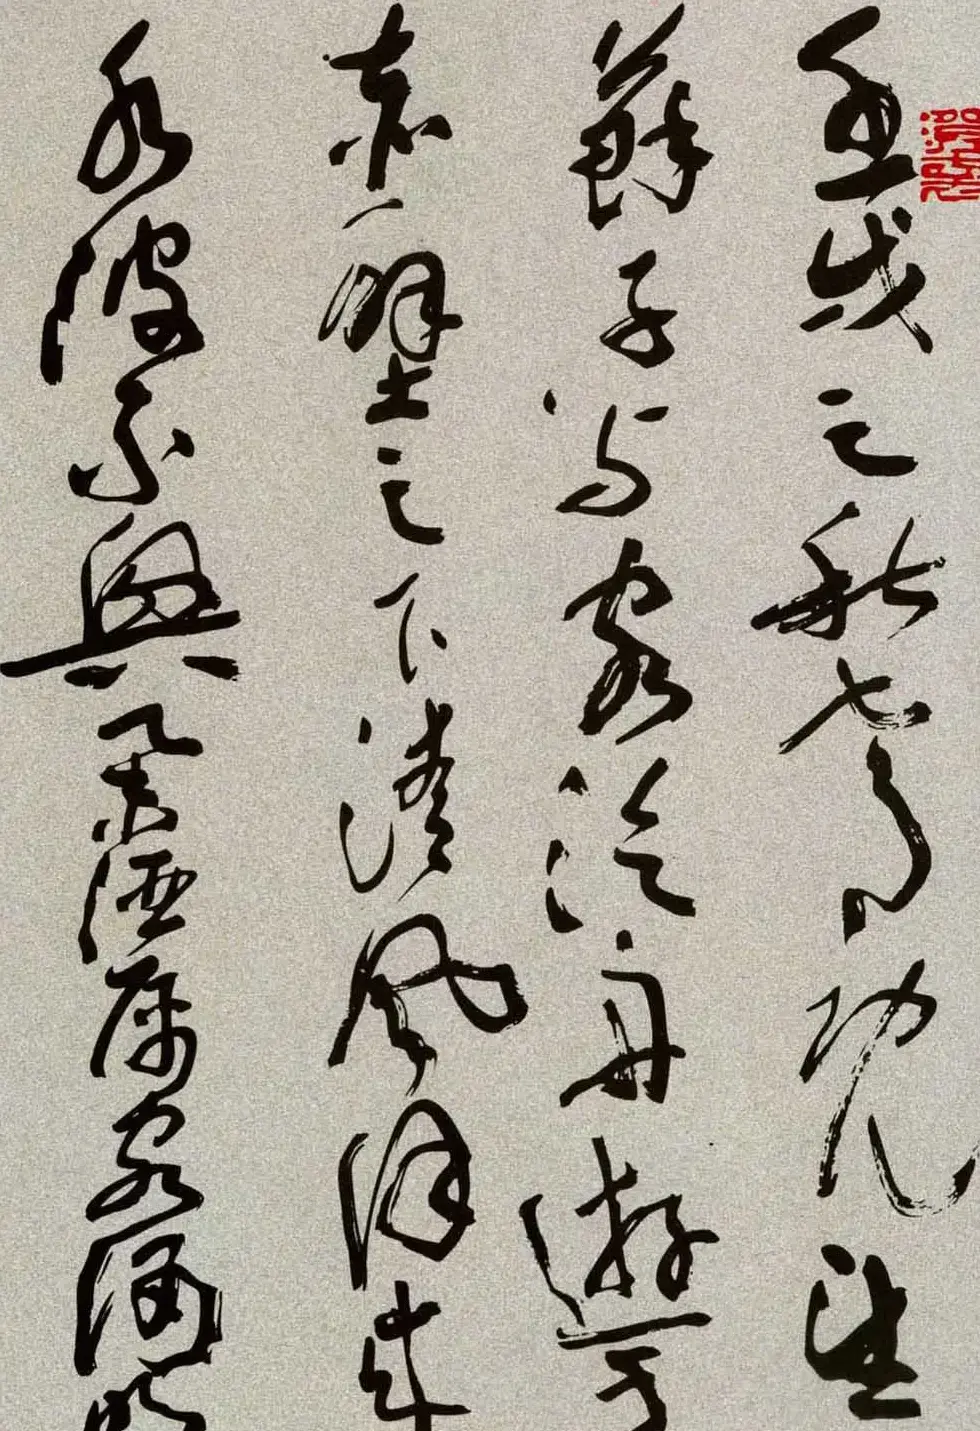 壬戌之秋七月既望
蘇子与客泛舟遊于
赤壁之下清風徐来
水波不興舉酒属客誦明